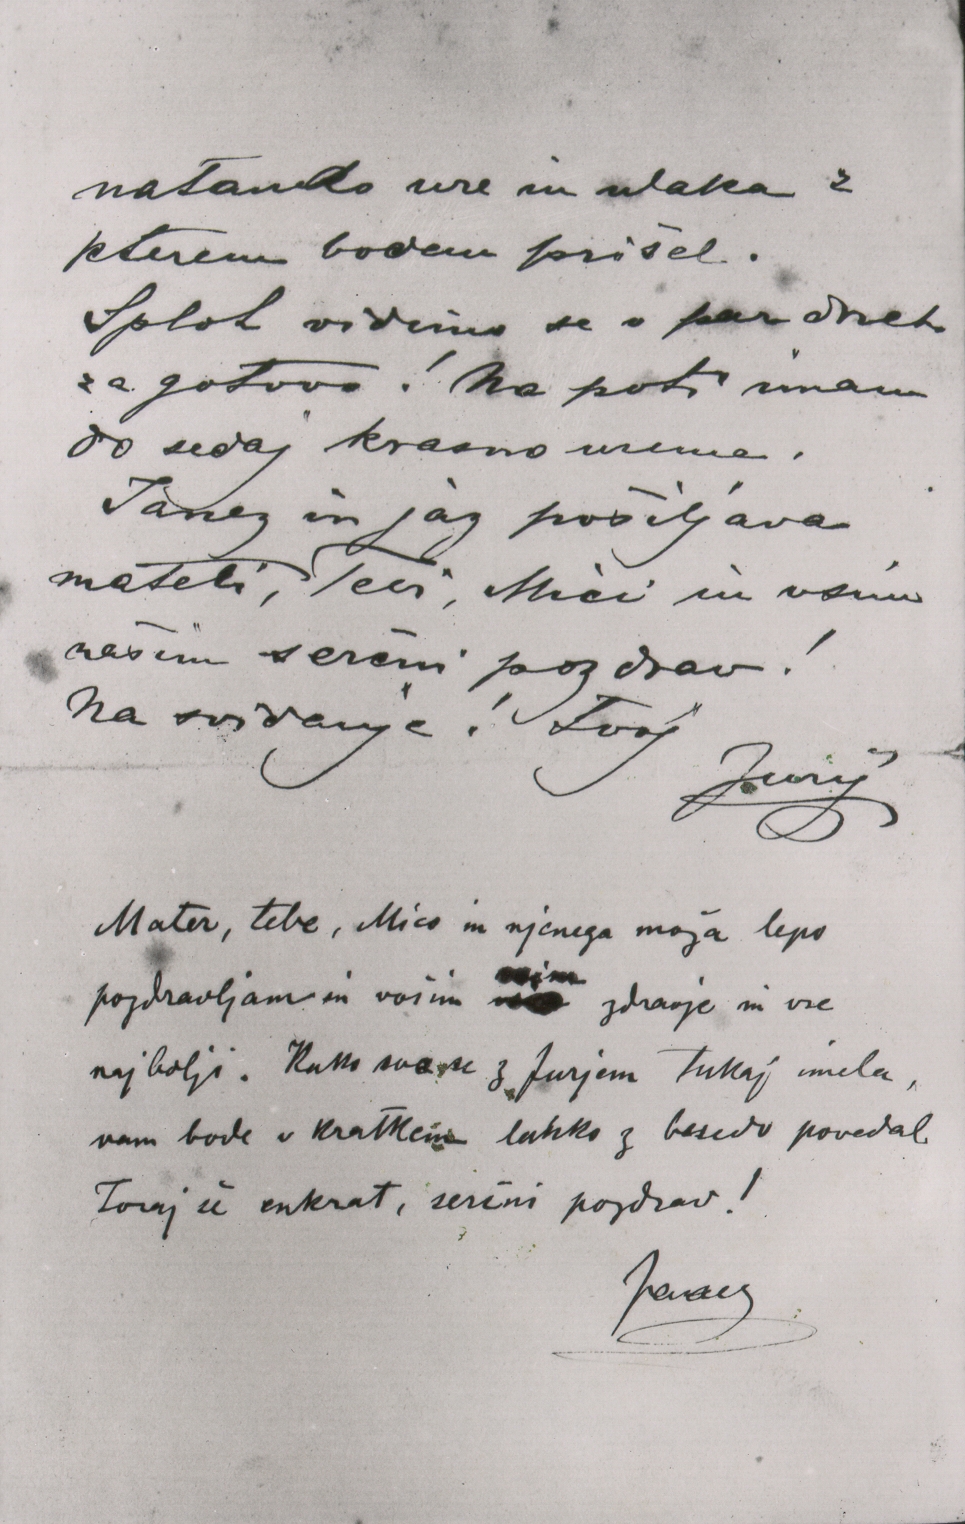 natanko ure in vlaka z
kterem bodem prišel.
Sploh vidimo se v par dneh
za gotovo! Na poti imam
do sedaj krasno vreme.
Janez in jaz pošiljava
materi, Tebi, Mici in vsim
našim serčni pozdrav!
Na svidanje! Tvoj
Jurij
Mater, tebe, Mico in njenega moža lepo
pozdravljam in vošim vsim zdravje in vse
najbolji. Kako sva se z Jurjem tukaj imela,
vam bode v kratkem lahko z besedo povedal.
Toraj še enkrat, serčni pozdrav!
Janez